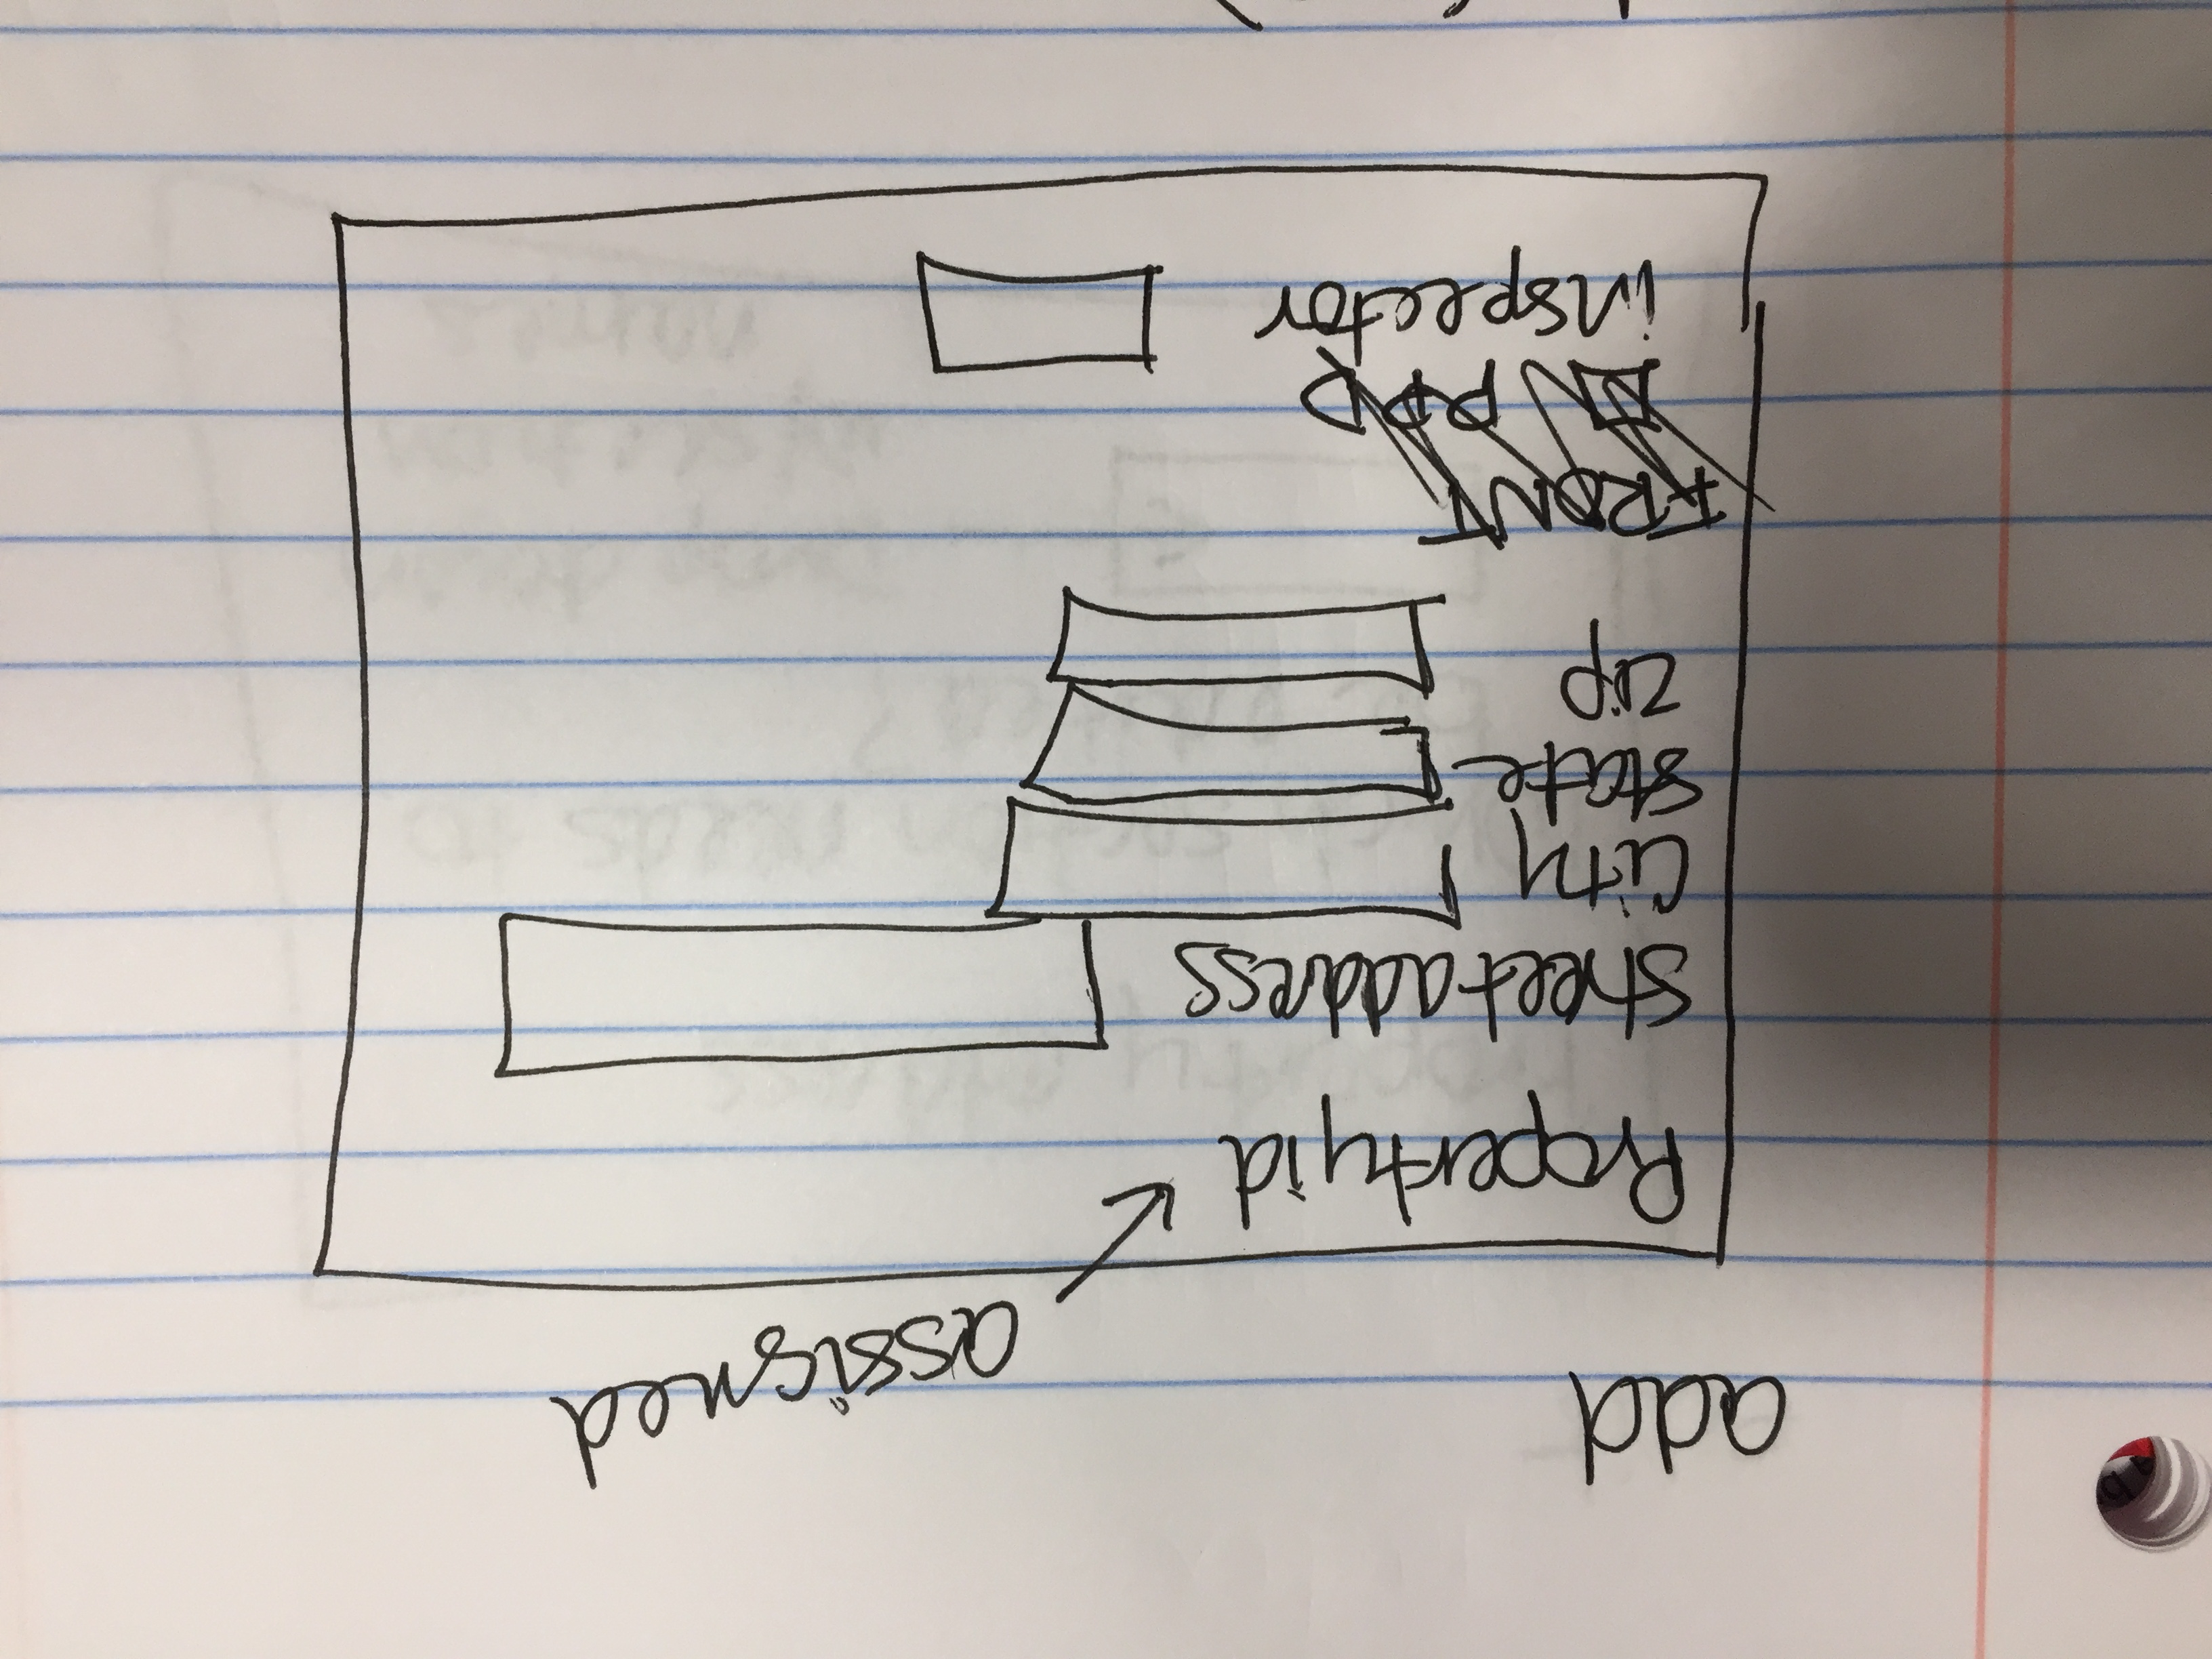 add
assigned
Propertyid
Street address
City
State
zip
FRONT
inspector